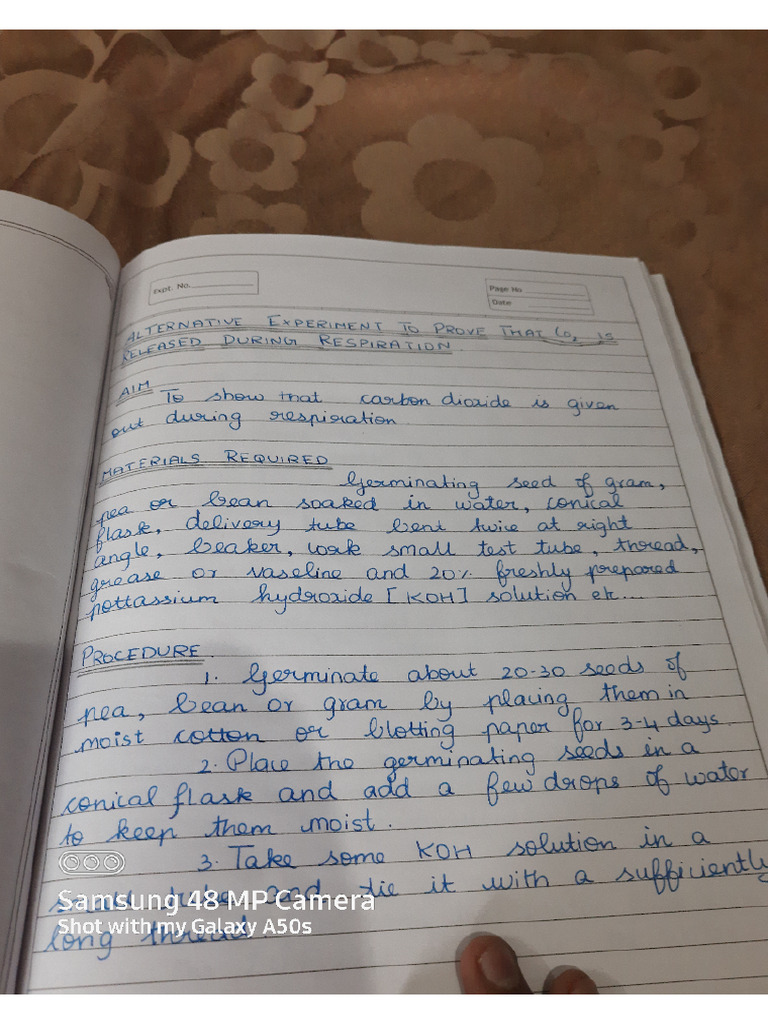 Expt. No.
Page No
Date
ALTERNATIVE EXPERIMENT TO PROVE THAT CO₂ IS
RELEASED DURING RESPIRATION.
AIM
To show that carbon dioxide is given
out during respiration
MATERIALS REQUIRED
Germinating seed of gram,
pea or bean soaked in water, conical
flask, delivery tube bent twice at right
angle, beaker, cork small test tube, thread,
grease or vaseline and 20% freshly prepared
pottassium hydroxide [KOH] solution etc...
PROCEDURE.
1. Germinate about 20-30 seeds of
pea, bean or gram by placing them in
moist cotton or blotting paper for 3-4 days.
2. Place the germinating seeds in a
conical flask and add a few drops of water
to keep them moist.
3. Take some KOH solution in a
small tube and tie it with a sufficiently
long thread
Samsung 48 MP Camera
Shot with my Galaxy A50s